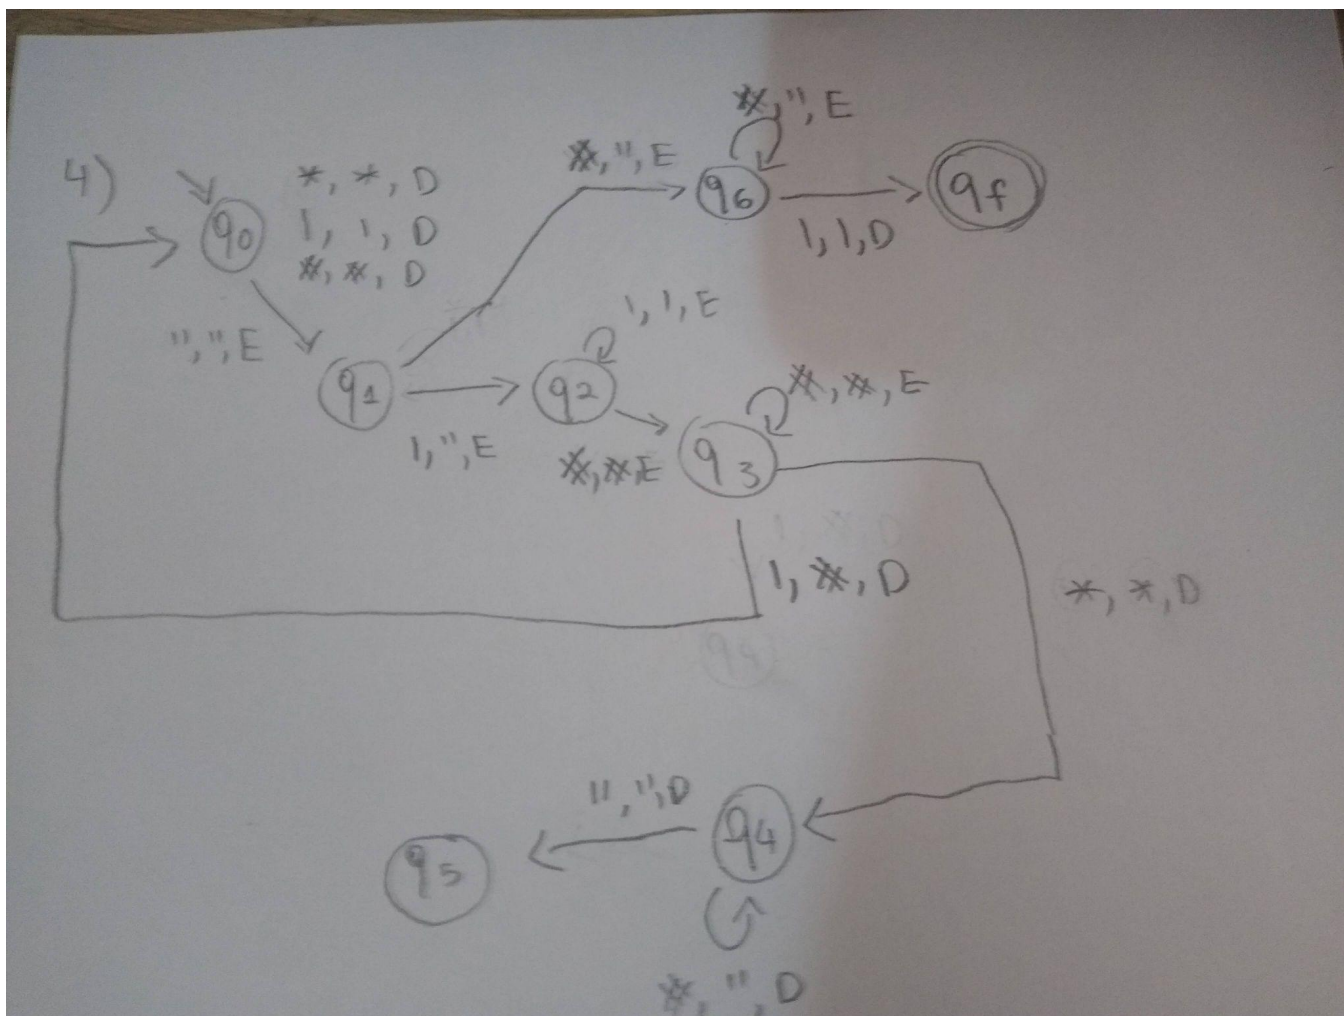 4)
*, *, D
1, 1, D
#, #, D
q0
", ", E
q1
#, ", E
#, ", E
q6
1, 1, D
qf
1, ", E
q2
1, 1, E
#, #, E
q3
#, #, E
1, #, D
*, *, D
q4
", ", D
q4
q5
#, ", D